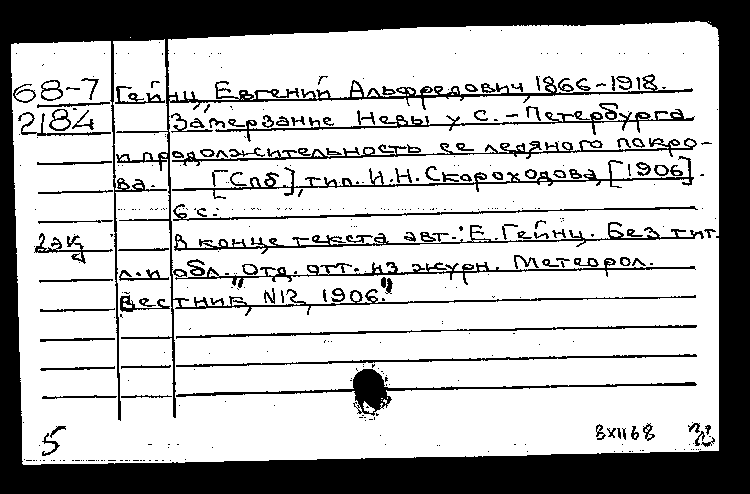 68-7 Гейнц, Евгений Альфредович, 1866-1918.
2184 Замерзание Невы у С.-Петербурга
и продолжительность ее ледяного покро-
ва. [Спб.], тип. И.Н. Скороходова, [1906].
6 с.
2 экз В конце текста авт.: Е. Гейнц. Без тит.
л. и обл. "Отд. отт. из журн. Метеорол.
Вестник, N12, 1906."
5 8XII68